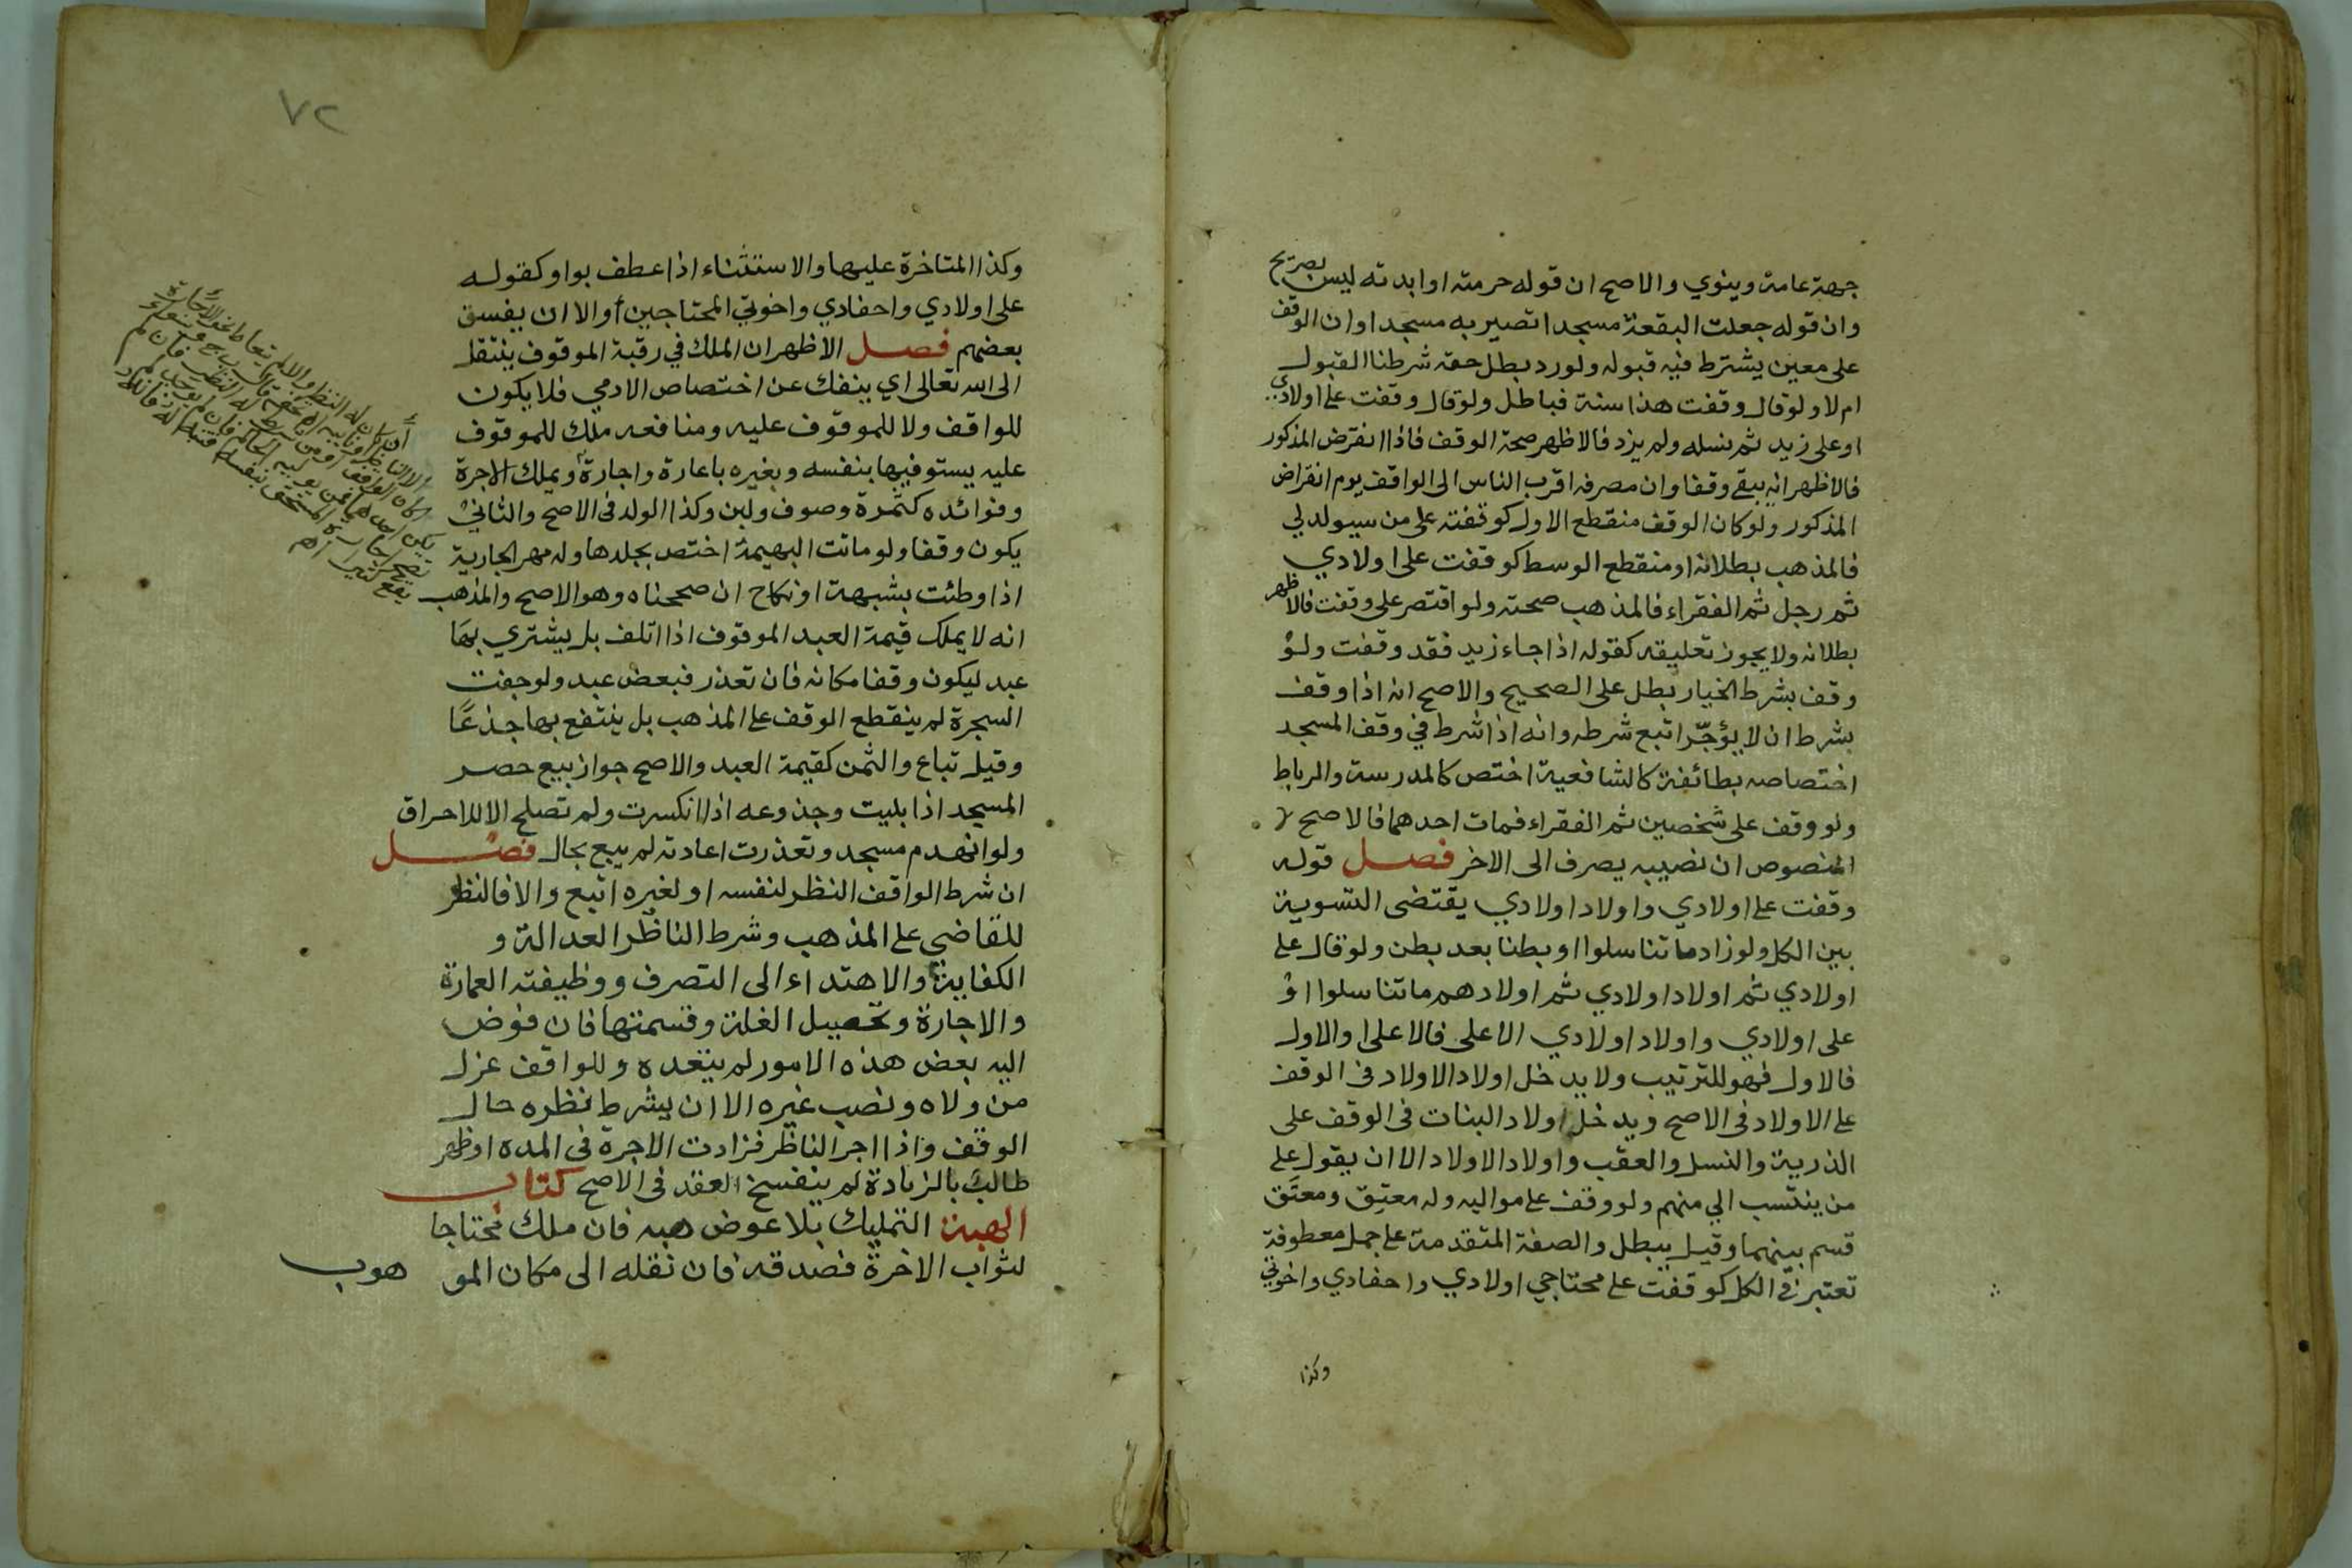 جهة عامة وينوي والاصح ان قوله حرمته او ابدته ليس بصريح
وان قوله جعلت البقعة مسجدا تصير به مسجدا وان الوقف
على معين يشترط فيه قبوله ولو رد بطل حقه شرطنا القبول
ام لا ولو قال وقفت هذا سنة فباطل ولو قال وقفت على اولادي
او على زيد ثم نسله ولم يزد فالاظهر صحة الوقف فاذا انقرض المذكور
فالاظهر انه يبقى وقفا وان مصرفه اقرب الناس الى الواقف يوم انقراض
المذكور ولو كان الوقف منقطع الاول كوقفته على من سيولد لي
فالمذهب بطلانه او منقطع الوسط كوقفت على اولادي
ثم رجل ثم الفقراء فالمذهب صحته ولو اقتصر على وقفت فالاظهر
بطلانه ولا يجوز تعليقه كقوله اذا جاء زيد فقد وقفت ولو
وقف بشرط الخيار بطل على الصحيح والاصح انه اذا وقف
بشرط ان لا يؤجر اتبع شرطه وانه اذا شرط في وقف المسجد
اختصاصه بطائفة كالشافعية اختص كالمدرسة والرباط
ولو وقف على شخصين ثم الفقراء فمات احدهما فالاصح
المنصوص ان نصيبه يصرف الى الاخر فصل قوله
وقفت على اولادي واولاد اولادي يقتضى التسوية
بين الكل ولو زاد ما تناسلوا او بطنا بعد بطن ولو قال على
اولادي ثم اولاد اولادي ثم اولادهم ما تناسلوا او
على اولادي واولاد اولادي الاعلى فالاعلى او الاول
فالاول فهو للترتيب ولا يدخل اولاد الاولاد في الوقف
على الاولاد في الاصح ويدخل اولاد البنات في الوقف على
الذرية والنسل والعقب واولاد الاولاد الا ان يقول على
من ينتسب الي منهم ولو وقف على مواليه وله معتِق ومعتَق
قسم بينهما وقيل يبطل والصفة المتقدمة على جمل معطوفة
تعتبر في الكل كوقفت على محتاجي اولادي واحفادي واخوتي
وكذا
٧٢
وكذا المتاخرة عليها والاستثناء اذا عطف بواو كقوله
على اولادي واحفادي واخوتي المحتاجين أو الا ان يفسق
بعضهم فصل الاظهر ان الملك في رقبة الموقوف ينتقل
الى الله تعالى اي ينفك عن اختصاص الادمي فلا يكون
للواقف ولا للموقوف عليه ومنافعه ملك للموقوف
عليه يستوفيها بنفسه وبغيره باعارة واجارة ويملك الاجرة
وفوائده كثمرة وصوف ولبن وكذا الولد في الاصح والثاني
يكون وقفا ولو ماتت البهيمة اختص بجلدها وله مهر الجارية
اذا وطئت بشبهة او نكاح ان صححناه وهو الاصح والمذهب
انه لا يملك قيمة العبد الموقوف اذا اتلف بل يشتري بها
عبد ليكون وقفا مكانه فان تعذر فبعض عبد ولو جفت
الشجرة لم ينقطع الوقف على المذهب بل ينتفع بها جذعًا
وقيل تباع والثمن كقيمة العبد والاصح جواز بيع حصر
المسجد اذا بليت وجذوعه اذا انكسرت ولم تصلح الا للاحراق
ولو انهدم مسجد وتعذرت اعادته لم يبع بحال فصل
ان شرط الواقف النظر لنفسه او لغيره اتبع والا فالنظر
للقاضي على المذهب وشرط الناظر العدالة و
الكفاية والاهتداء الى التصرف ووظيفته العمارة
والاجارة وتحصيل الغلة وقسمتها فان فوض
اليه بعض هذه الامور لم يتعده وللواقف عزل
من ولاه ونصب غيره الا ان يشرط نظره حال
الوقف واذا اجر الناظر فزادت الاجرة في المدة او ظهر
طالب بالزيادة لم ينفسخ العقد في الاصح كتاب
الهبة التمليك بلا عوض هبه فان ملك محتاجا
لثواب الاخرة فصدقه فان نقله الى مكان المو هوب